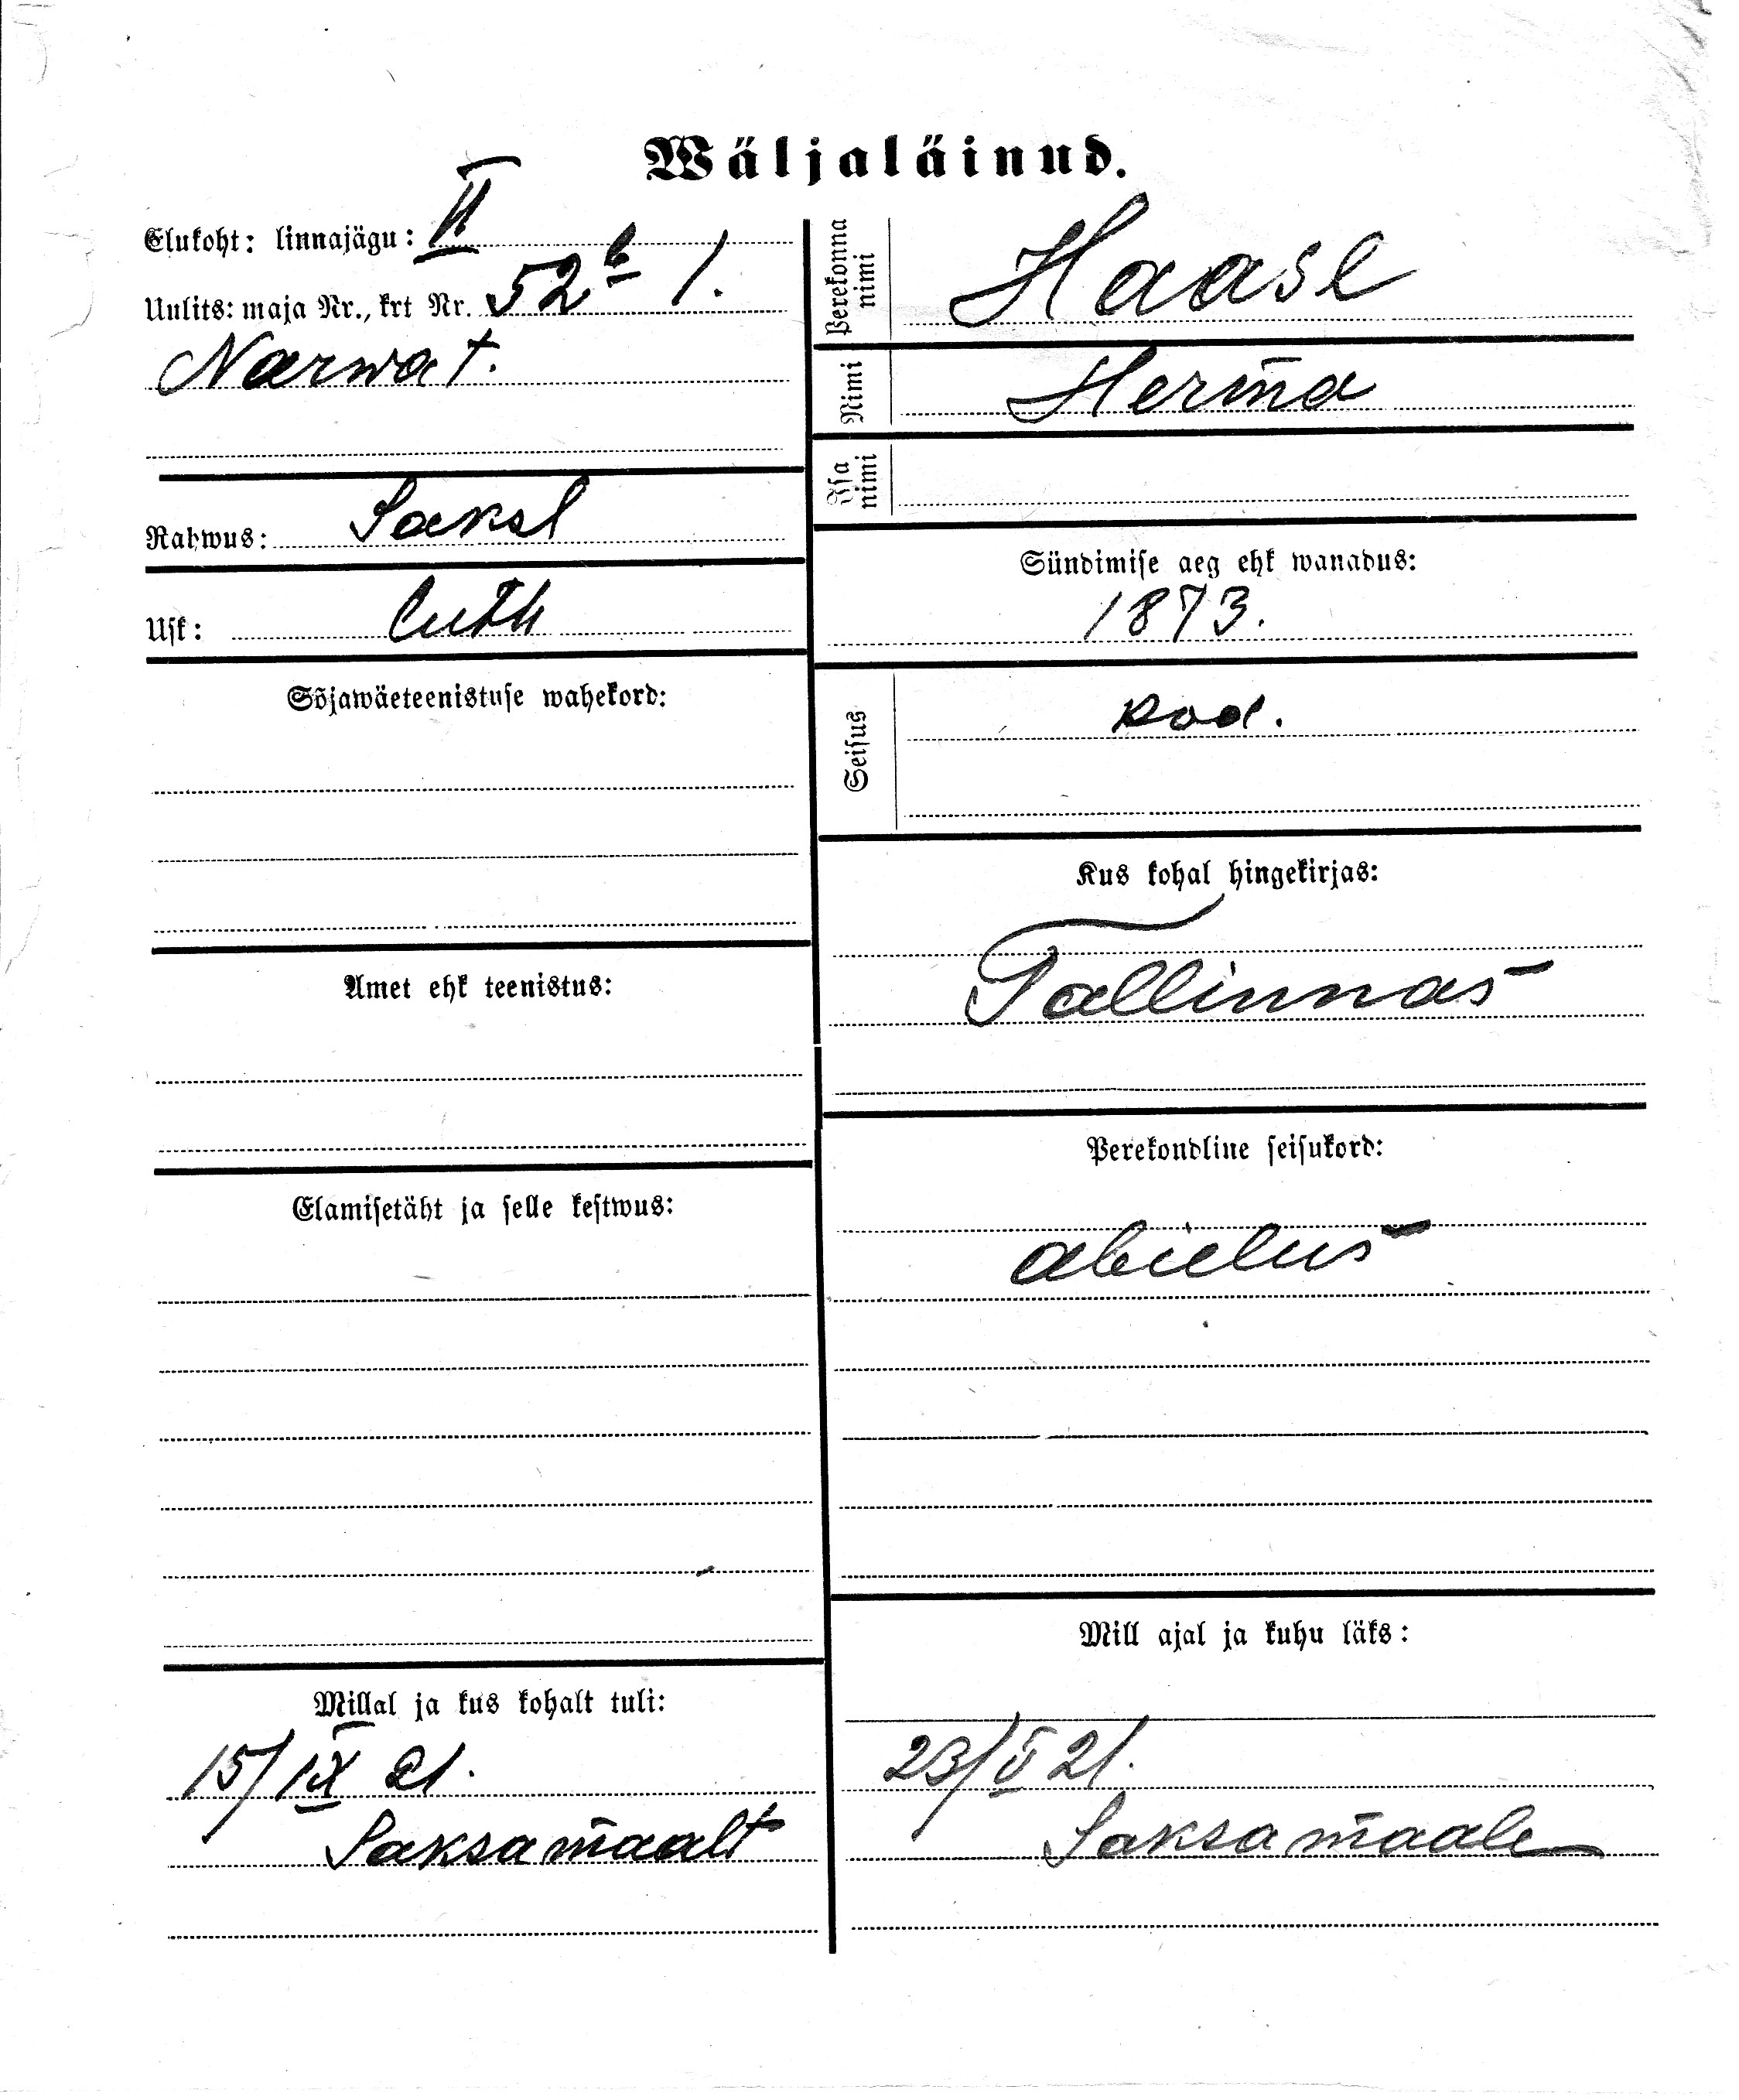 Wäljaläinud.
Elukoht: linnajägu: II
Uulits: maja Nr., krt Nr. 52b 1.
Narwa t.
Rahwus: Saksl
Usk: luth
Sõjawäeteenistuse wahekord:
Amet ehk teenistus:
Elamisetäht ja selle kestwus:
Millal ja kus kohalt tuli:
15/IX 21.
Saksamaalt
Perekonna nimi Haase
Nimi Herma
Isa nimi
Sündimise aeg ehk wanadus:
1873.
Seisus kod.
Kus kohal hingekirjas:
Tallinnas
Perekondline seisukord:
abielus
Mill ajal ja kuhu läks:
23/V 21.
Saksamaale